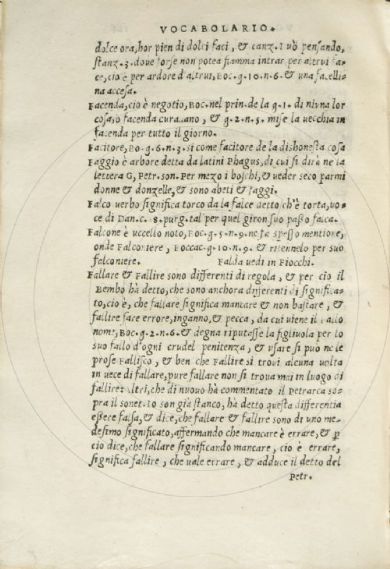 VOCABOLARIO.
dolce ora, hor pien di dolci faci, & canz. 1 vò pensando,
stanz. 3. doue forse non potea fiamma intrar per altrui fa-
ce, cio è per ardore d'altrui, Boc. g. 10. n. 6. & una facellina
accesa.
Facenda, cio è negotio, Boc. nel prin. de la g. 1. di niuna lor
cosa, ò facenda curauano, & g. 2. n. 5. mise la uecchia in
facenda per tutto il giorno.
Facitore, Bo. g. 6. n. 3. si come facitore de la dishonesta cosa
Faggio è arbore detta da latini Phagus, di cui si dirà ne la
lettera G, Petr. son. Per mezo i boschi, & ueder seco parmi
donne & donzelle, & sono abeti & faggi.
Falco uerbo significa torco da la falce detto ch'è torta, uo-
ce di Dan. c. 18. purg. tal per quel giron suo passo falca.
Falcone è uccello noto, Boc. g. 5. n. 9. ne fa spesso mentione,
onde Falconiere, Boccac. g. 10. n. 9. & ritennelo per suo
falconiere. Falda uedi in Fiocchi.
Fallare & Fallire sono differenti di regola, & per cio il
Bembo hà detto, che sono anchora differenti di significa-
to, cio è, che fallare significa mancare & non bastare, &
fallire fare errore, inganno, & pecca, da cui uiene il Fallo
nome, Boc. g. 2. n. 6. & degna riputasse la figliuola per lo
suo fallo d'ogni crudel penitenza, & usare si può ne le
prose Fallisco, & ben che Fallire si troui alcuna uolta
in uece di fallare, pure fallare non si troua mai in luogo di
fallire: Altri, che di nuouo hà commentato il Petrarca so-
pra il sonetto son già stanco, hà detto questa differentia
essere falsa, & dice, che fallare & fallire sono di uno me-
desimo significato, affermando che mancare è errare, & p
cio dice, che fallare significando mancare, cio è errare,
significa fallire, che uale errare, & adduce il detto del
Petr.